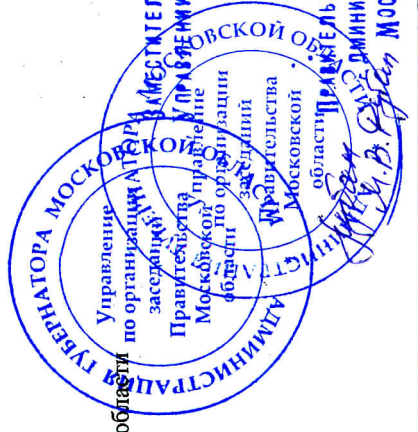 АДМИНИСТРАЦИЯ ГУБЕРНАТОРА МОСКОВСКОЙ ОБЛАСТИ
Управление
по организации
заседаний
Правительства
Московской
области
МОСКОВСКОЙ ОБЛАСТИ
Управление
по организации
заседаний
Правительства
Московской
области
области
ЗАМЕСТИТЕЛ
УПРАВЛЕНИ
ПРАВИТЕЛЬ
МОС